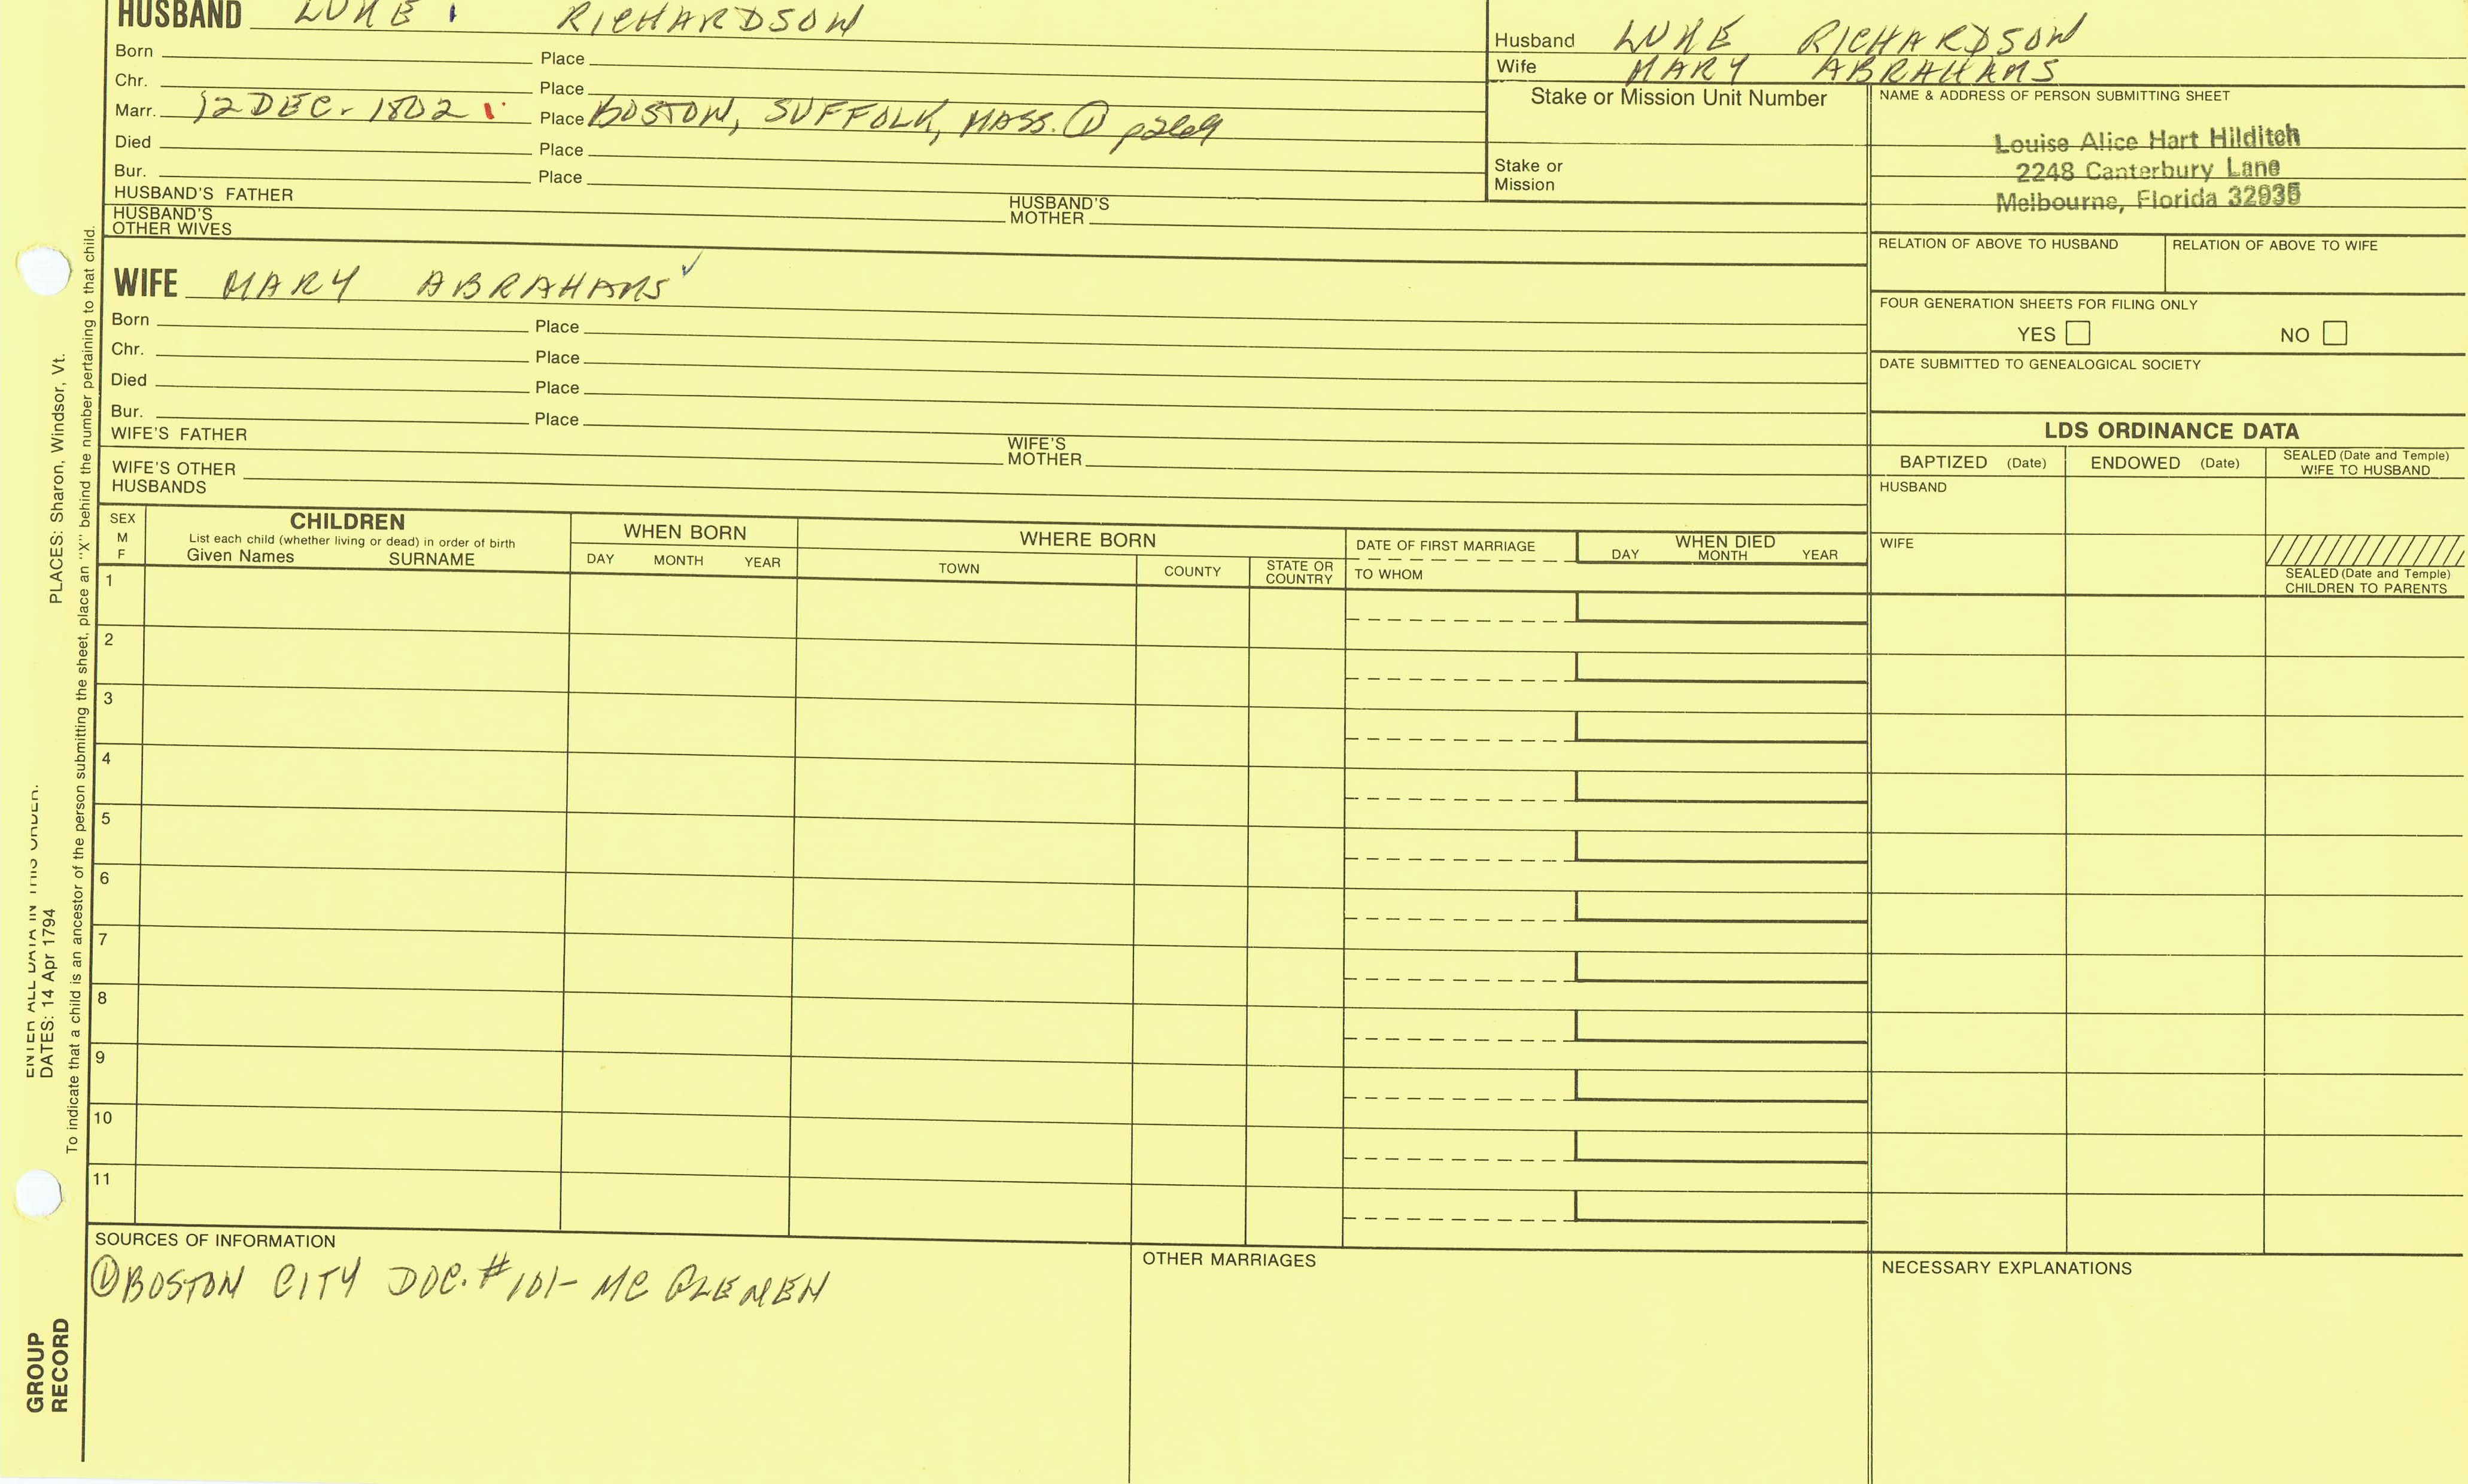 HUSBAND LUKE RICHARDSON
Born Place
Chr. Place
Marr. 12 DEC. 1802 Place BOSTON, SUFFOLK, MASS. ① p269
Died Place
Bur. Place
HUSBAND'S FATHER HUSBAND'S MOTHER
HUSBAND'S OTHER WIVES
WIFE MARY ABRAHAMS
Born Place
Chr. Place
Died Place
Bur. Place
WIFE'S FATHER WIFE'S MOTHER
WIFE'S OTHER HUSBANDS
Husband LUKE RICHARDSON
Wife MARY ABRAHAMS
Stake or Mission Unit Number
Stake or
Mission
NAME & ADDRESS OF PERSON SUBMITTING SHEET
Louise Alice Hart Hilditch
2248 Canterbury Lane
Melbourne, Florida 32935
RELATION OF ABOVE TO HUSBAND RELATION OF ABOVE TO WIFE
FOUR GENERATION SHEETS FOR FILING ONLY
YES NO
DATE SUBMITTED TO GENEALOGICAL SOCIETY
LDS ORDINANCE DATA
BAPTIZED (Date) ENDOWED (Date) SEALED (Date and Temple) WIFE TO HUSBAND
HUSBAND
WIFE
SEALED (Date and Temple)
CHILDREN TO PARENTS
SEX M F
CHILDREN
List each child (whether living or dead) in order of birth
Given Names SURNAME
WHEN BORN
DAY MONTH YEAR
WHERE BORN
TOWN COUNTY STATE OR COUNTRY
DATE OF FIRST MARRIAGE
TO WHOM
WHEN DIED
DAY MONTH YEAR
1
2
3
4
5
6
7
8
9
10
11
SOURCES OF INFORMATION
① BOSTON CITY DOC. #101- MC
OTHER MARRIAGES
NECESSARY EXPLANATIONS
ENTER ALL DATA IN THIS ORDER.
DATES: 14 Apr 1794 PLACES: Sharon, Windsor, Vt.
To indicate that a child is an ancestor of the person submitting the sheet, place an "X" behind the number pertaining to that child.
GROUP
RECORD